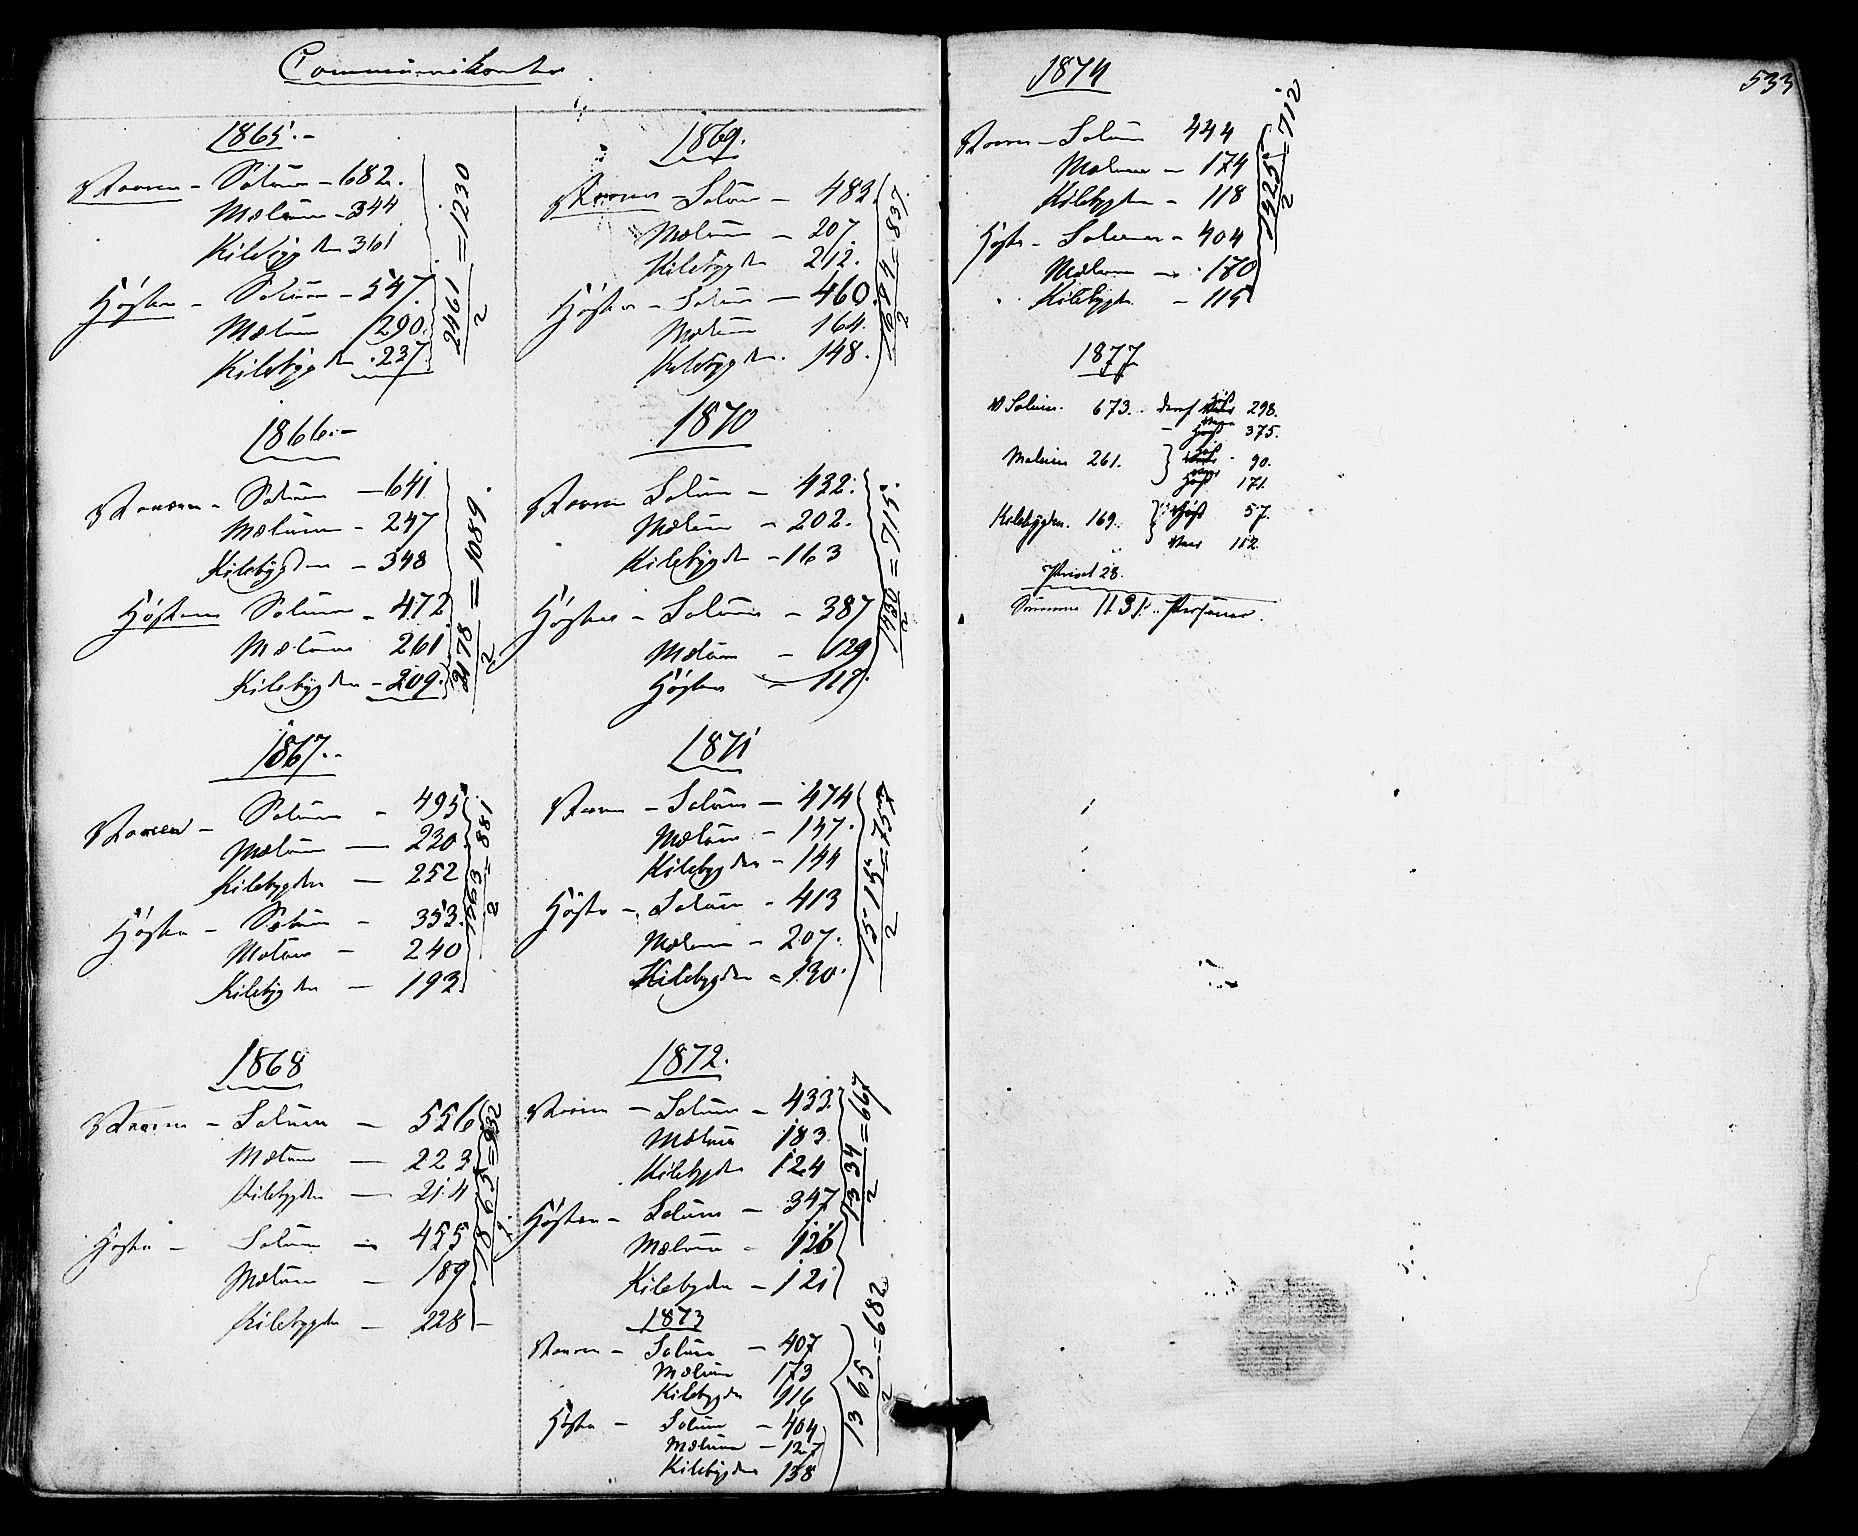 Communikanter
1865.-
Vaaren - Solum - 682.
Mælum - 344
Kilebygden 361
Høsten - Solum - 547.
Mælum 290.
Kilebygden . 237.
2461/2 = 1230
1866.-
Vaaren - Solum - 641
Mælum - 247
Kilebygden - 348
Høsten Solum - 472
Mælum 261
Kilebygden - 209.
2178/2 = 1089.
1867.-
Vaaren - Solum - 495
Mælum - 230
Kilebygden - 252
Høsten - Solum - 353.
Mælum - 240
Kilebygden - 193.
1763/2 = 881
1868
Vaaren - Solum - 556
Mælum - 223
Kilebygden - 214
Høsten - Solum - 455
Mælum - 189
Kilebygden - 228 -
1865/2 = 932
1869.
Vaaren - Solum - 483.
Mælum - 207
Kilebygden 212.
Høsten - Solum - 460.
Mælum 164.
Kilebygden. 148.
1674/2 = 837.
1870
Vaaren Solum - 432.
Mælum - 202.
Kilebygden - 163
Høsten - Solum - 387
Mælum - 129
Høsten - 117.
1430/2 = 715.
1871
Vaaren - Solum - 474
Mælum - 147.
Kilebygden - 144
Høsten - Solum - 413
Mælum - 207.
Kilebygden = 130.
1515/2 = 757
1872.
Vaaren - Solum - 433.
Mælum 183.
Kilebygden 124
Høsten - Solum - 347
Mælum - 126
Kilebygden - 121
1334/2 = 667
1873
Vaaren - Solum - 407
Mælum 173
Kilebygden 116
Høsten - Solum - 404
Mælum - 127
Kilebygden 138
1365/2 = 682
533
1874
Vaaren - Solum 444
Mælum - 174
Kilebygden - 118
Høsten - Solum - 404
Mælum - 170
Kilebygden - 115
1425/2 = 712
1877
Solum. 673. - deraf Høst 298.
Vaar 375.
Mælum 261. Høst - 90.
Vaar 171.
Kilebygden. 169. Høst 57.
Vaar 112.
Privat 28.
Summa 1131. Personer.